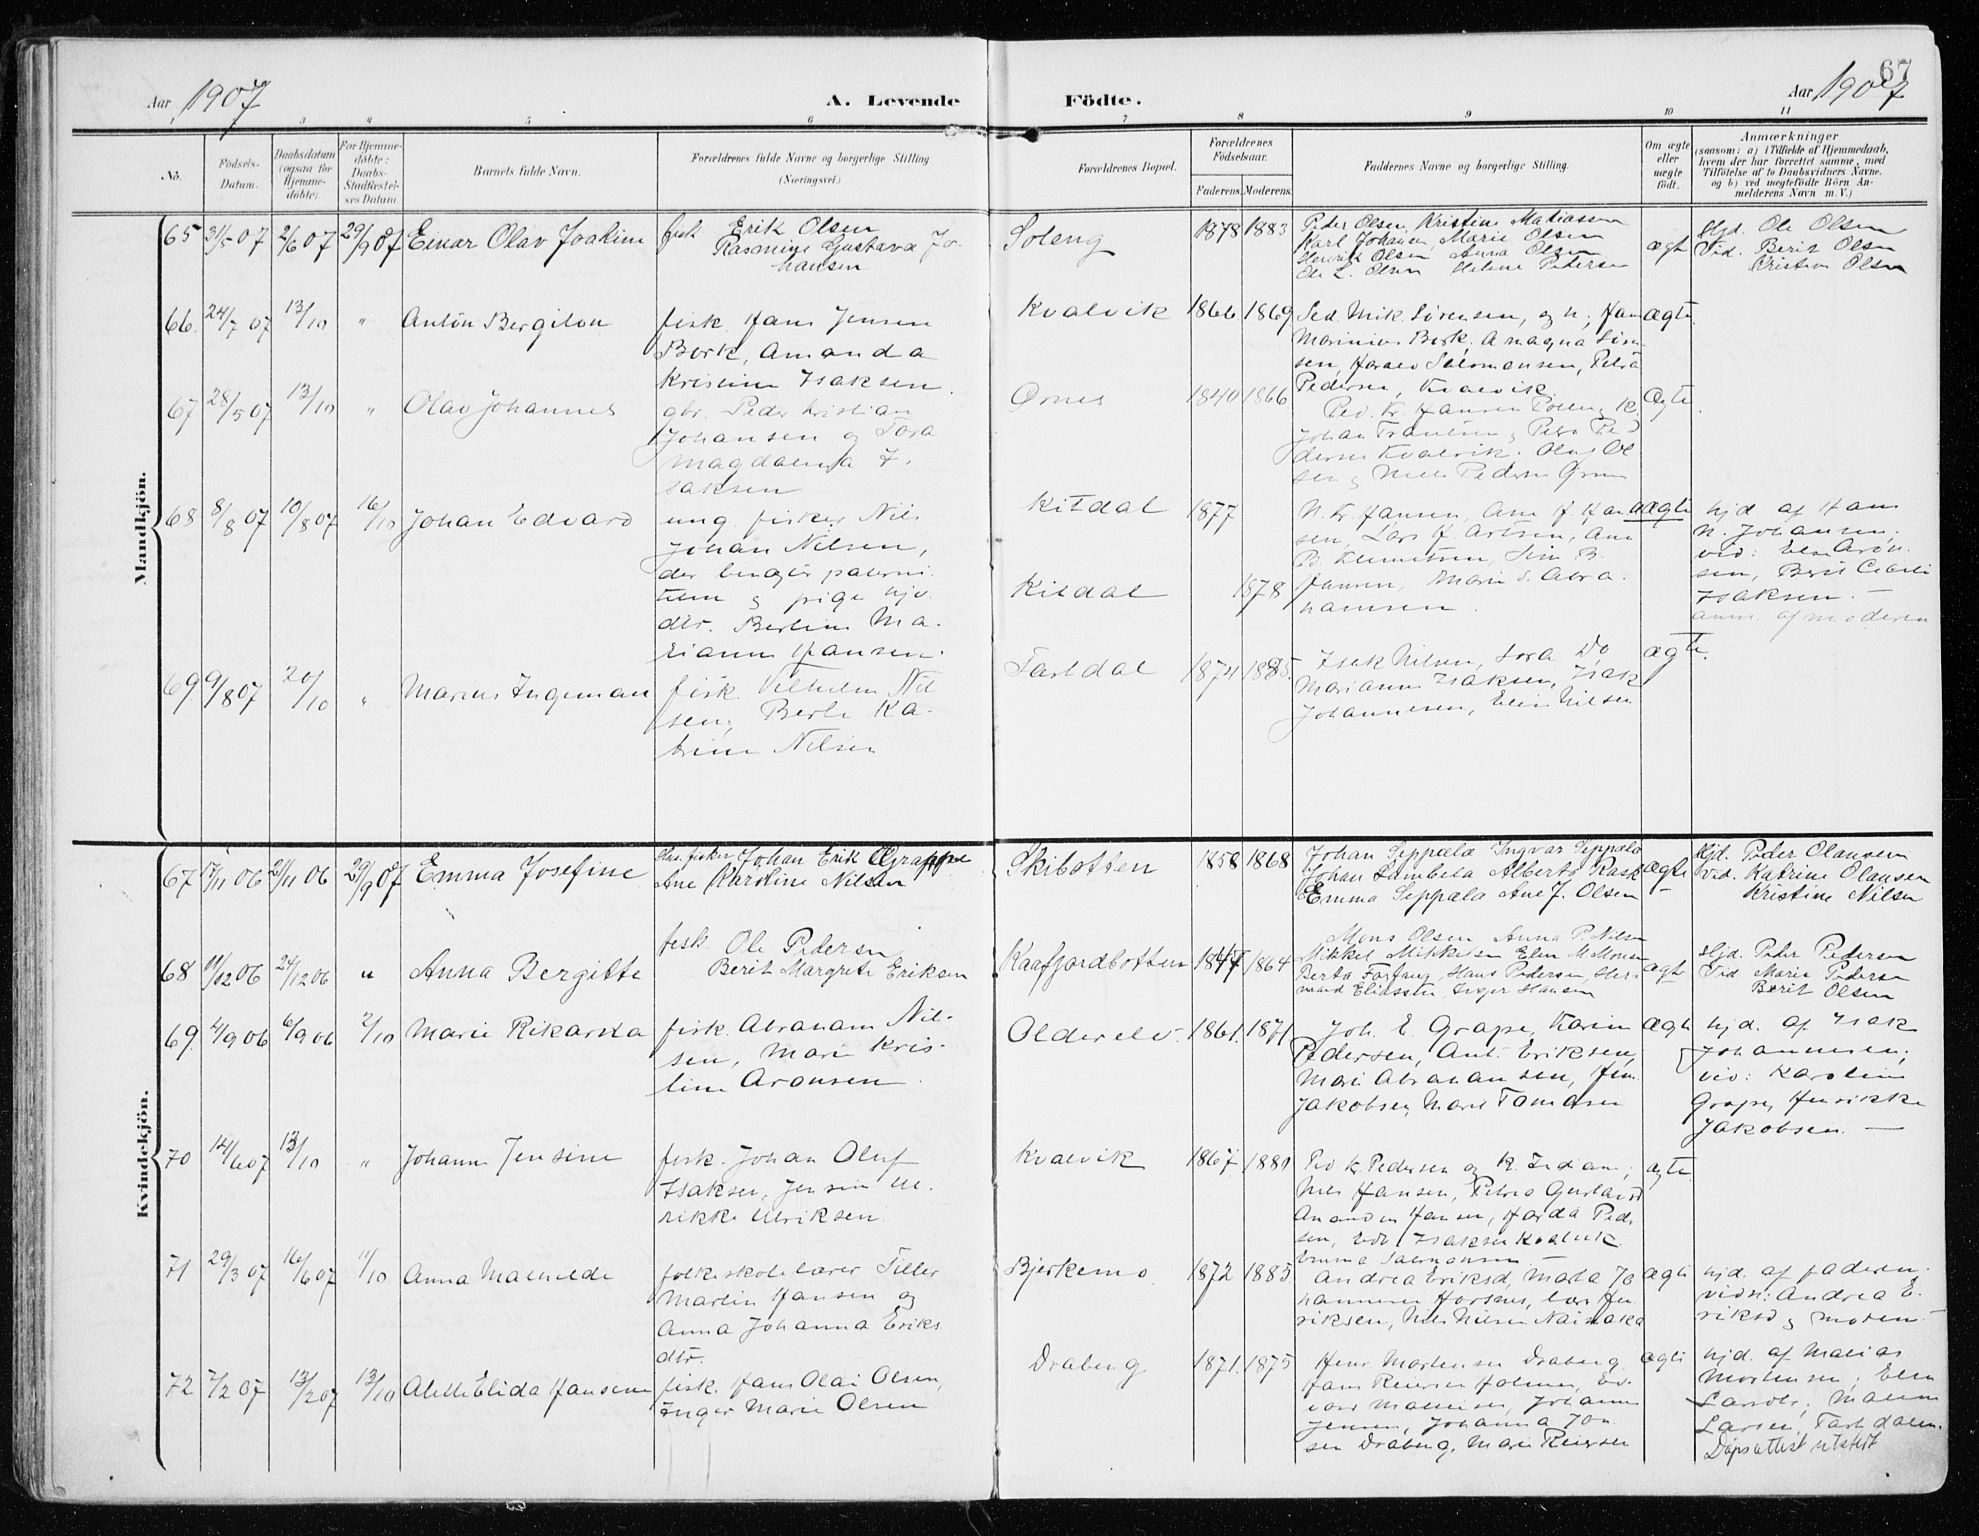 67
Aar 1907
A. Levende Födte.
Aar 1907
1 3 4 5 6 7 8 9 10 11
No.
Födsels-Datum.
Daabsdatum (ogsaa for Hjemmedöbte).
For Hjemmedöbte: Daabs-Stadfæstelses Datum.
Barnets fulde Navn.
Forældrenes fulde Navne og borgerlige Stilling. (Næringsvei.)
Forældrenes Bopæl.
Forældrenes Födselsaar.
Faderens. Moderens.
Faddernes Navne og borgerlige Stilling.
Om ægte eller uægte födt.
Anmærkninger
(saasom: a) i Tilfælde af Hjemmedaab,
hvem der har forrettet samme, med
Tilföielse af to Daabsvidners Navne.
og b) ved uegtefödte Börn Anmelderens Navn m. V.)
Mandkjön.
65 31/5 07 2/6 07 29/9 07 Einar Olav Joakim
fisk. Erik Olsen
Rasmine Gustava Jo-
hansen
Soleng 1878 1883
Peder Olsen, Kristine Matiassen
Karl Johansen, Marie Olsen
Henrik Olsen Anna Olsen
Ole L. Olsen Helene Pedersen
ægt
Hjd. Ole Olsen
Vid. Berit Olsen
Kristian Olsen
66. 24/7 07 13/10 " Anton Bergiton
fisk. Hans Jensen
Bork, Amanda
Kristine Isaksen.
Kvalvik 1866 1869
Sed. Mik. Sørensen, og h; Han
Marinius Bork. Amagna Sim
sen, Salomonsen, Petra
Pedersen, Kvalvik.
ægte.
67 28/5 07 13/10 " Olav Johannes
gbr. Peder Kristian
Johansen og Tora
Magdalena I-
saksen
Ørnes 1840 1866
Ped. Kr. Hansen
Johan
Kvalvik. Olaf Ol
sen Pedersen
Ægte.
68 8/8 07 10/8 07 16/10 Johan Edvard
ung. fisker Nils
Johan Nilsen,
der benægter paterni-
teten og pige hjv.
dtr. Berline Ma-
rianne Hansen.
Kitdal 1877
Kitdal 1878
N. Kr. Jansen, Ane J. Han
sen, Lars H. Artsen, Ane
B. Klemetsen, Sim B.
Jansen, Marie S. Abra
hamsen.
uægte
hjd. af Hans
N. Johansen;
vid: Else Aron-
sen, Berit Cecili
Isaksen. —
anm. af moderen
69 9/8 07 20/10 " Marius Ingeman
fisk. Vilhelm Nil
sen, Berte Ka-
trine Nilsen
Tartdal 1874 1885.
Isak Nilsen, Sara Do
Marianne Isaksen, Isak
Johannesen, Elen Nilsen
ægte.
Kvindekjön.
67 17/11 06 21/11 06 29/9 07 Emma Josefine
fisker Johan Erik Grappe
Ane Karoline Nilsen
Skibotten 1858 1868
Johan Seppala Ingvar Seppala
Johan Lambela Alberto Rask
Emma Seppala Ane J. Olsen
ægte
Hjd. Peder Olausen
Vid. Katrine Olausen
Kristine Nilsen
68 11/12 06 24/12 06 " Anna Bergitte
fisk. Ole Pedersen
Berit Margrete Eriksen
Kaafjordbotten 1847 1864
Mons Olsen Anna P. Nilsen
Mikkel Mikkelsen Elen M. Monsen
Berta Farfang, Hans Pedersen, Her-
mand Eliassen, Inger Hansen
ægt
Hjd. Peder Pedersen
Vid Marie Pedersen
Berit Olsen
69. 4/9 06 6/9 06 2/10 Marie Rikarda
fisk. Abraham Nil-
sen, Marie Kris-
tine Aronsen.
Olderelv. 1861. 1871
Joh. E. Grape, Karin
Pedersen, Ant. Eriksen,
Marie Abrahamsen, Jen.
Jakobsen, Marie Tomasen
Ægte
hjd. af Isak
Johannesen;
vid: Karoline
Grape, Henrikke
Jakobsen. —
70 14/6 07 13/10 " Johanne Jensine
fisk. Johan Oluf
Isaksen, Jensine Ul-
rikke Ulriksen.
Kvalvik 1867. 1881
Ped. Kr. Pedersen og
Nils Hansen, Petra Gustavsd
Hansen, Harda Peder
sen, Isaksen Kvalvik
Emma Salomonsen —
ægte
71 29/3 07 16/6 07 11/10 Anna Mathilde
folkeskolelærer Tiller
Martin Hansen og
Anna Johanna Eriks
dtr.
Bjerkemo 1872 1885
Andrea Eriksd, Marta Jo
hannesen Horsnes, Lars Hen
riksen, Nils Nilsen
ægte
hjd. af faderen.
vidn: Andrea E-
riksd og moren.
72 7/2 07 13/2 07 13/10 Alette Elida Hansine
fisk. Hans Olai Olsen,
Inger Marie Olsen
Draberg 1871. 1875
Henr. Mortensen Draberg
Hans Reiersen Holmen, Ed-
vard Mathisen, Johanne
Jensen, Johanna Jon
sen Draberg, Marie Reiersen
ægte
hjd. af Matias
Mortensen; Elen
Larsdtr, Malene
Larsen, Tartdalen.
Dåpsattest utstedt